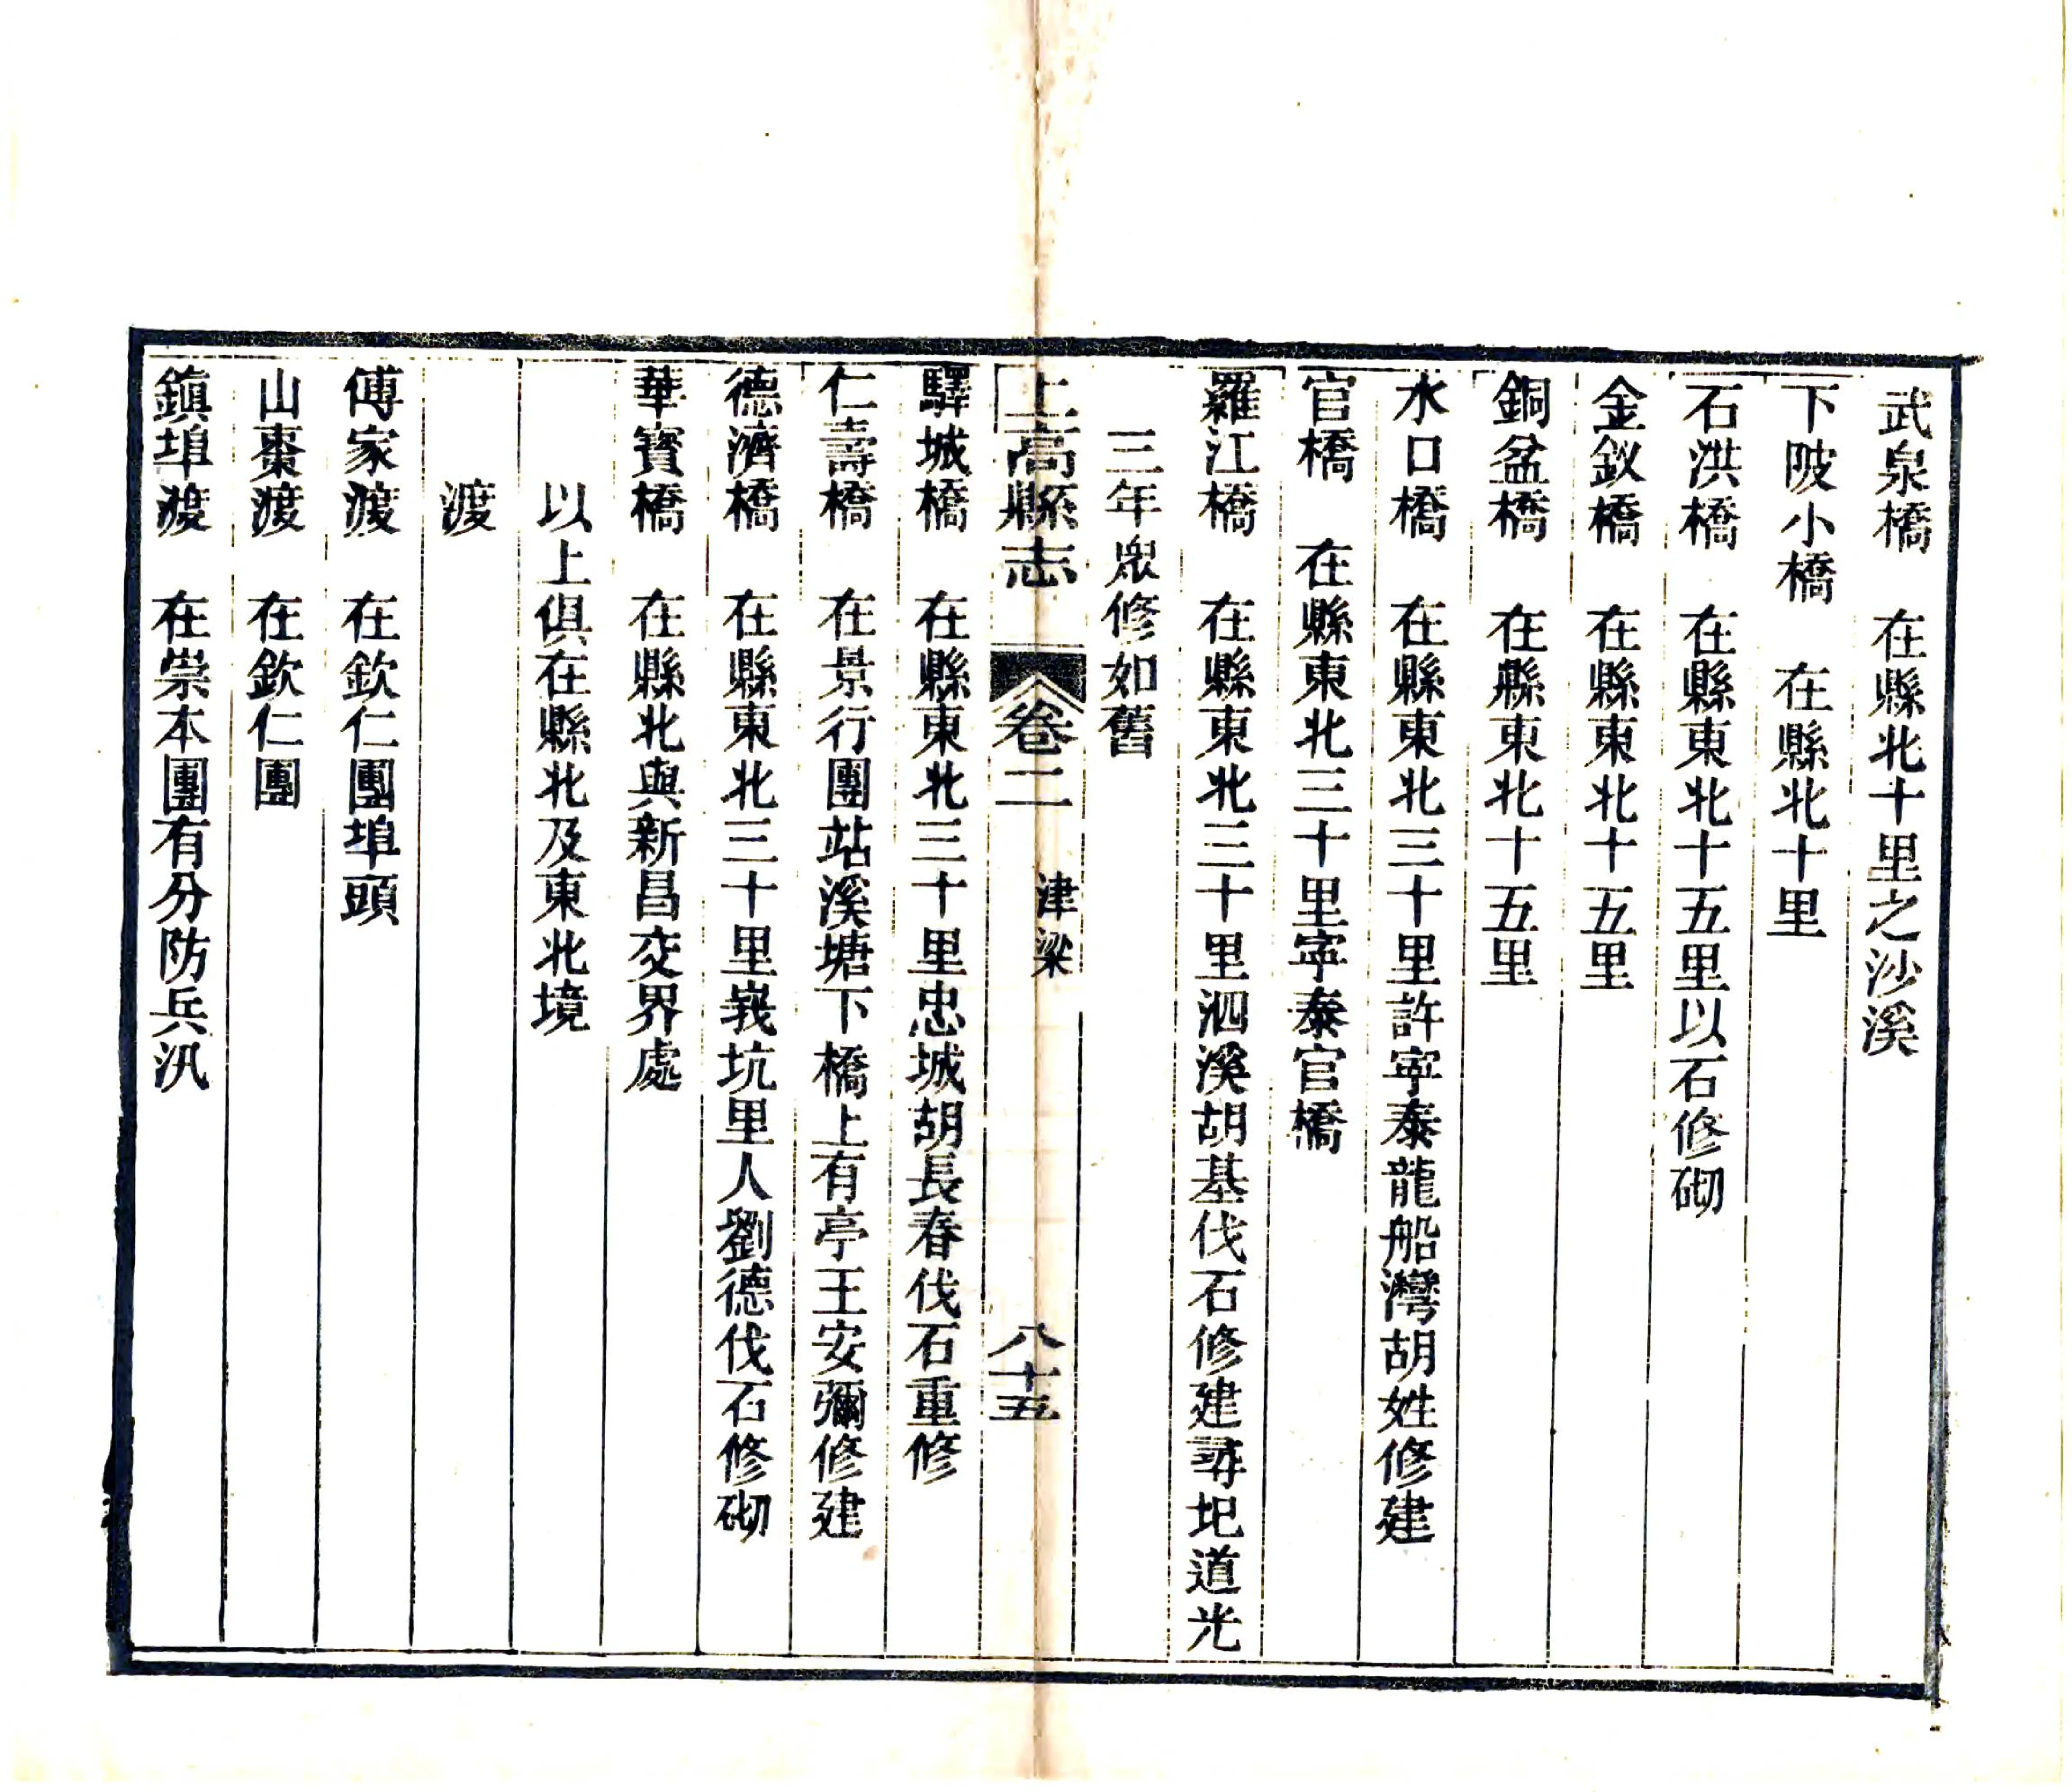 武泉橋　在縣北十里之沙溪
下陂小橋　在縣北十里
石洪橋　在縣東北十五里以石修砌
金釵橋　在縣東北十五里
銅盆橋　在縣東北十五里
水口橋　在縣東北三十里許寧泰龍船灣胡姓修建
官橋　在縣東北三十里寧泰官橋
羅江橋　在縣東北三十里泗溪胡基伐石修建尋圯道光
三年眾修如舊
上高縣志　卷二　津梁　八十五
驛城橋　在縣東北三十里忠城胡長春伐石重修
仁壽橋　在景行團站溪塘下橋上有亭王安彌修建
德濟橋　在縣東北三十里峩坑里人劉德伐石修砌
華寶橋　在縣北與新昌交界處
以上俱在縣北及東北境
渡
傅家渡　在欽仁團埠頭
山棗渡　在欽仁團
鎮埠渡　在崇本團有分防兵汛